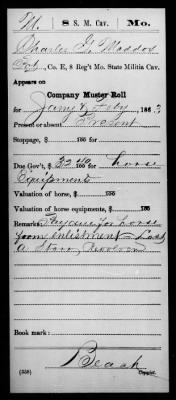 M. 8 S. M. Cav. Mo.
Charles G. Maddox
Pvt., Co. E, 8 Reg't Mo. State Militia Cav.
Appears on
Company Muster Roll
for Jany & Feby, 1863
Present or absent Present
Stoppage, $ 100 for
Due Gov't, $ 32 40/100 for horse
Equipments
Valuation of horse, $ 100
Valuation of horse equipments, $ 100
Remarks: Pay due for horse
from enlistment. Lost
a Starr Revolver
Book mark:
Beach
(358) Copyist.